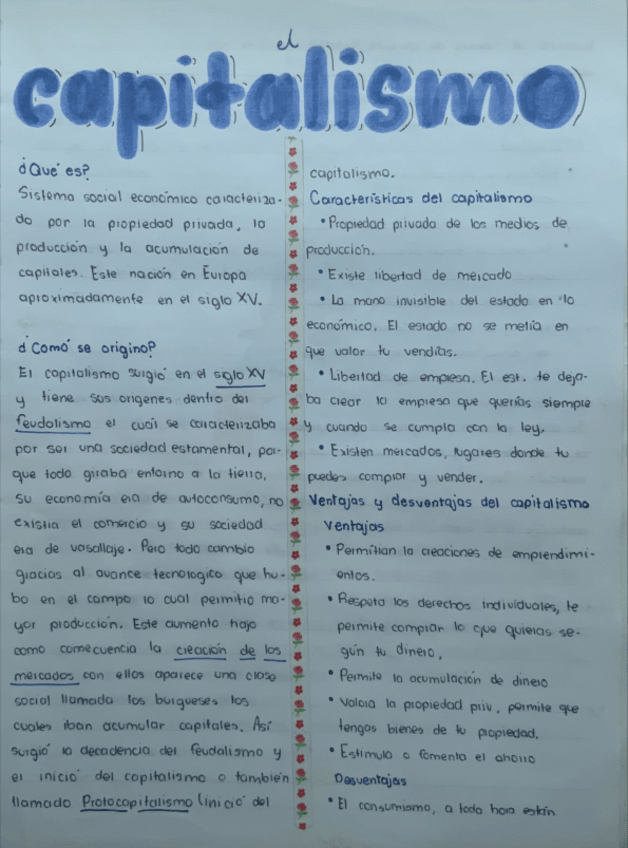 el
capitalismo
¿Que es?
Sistema social económico caracteriza-
do por la propiedad privada, la
producción y la acumulación de
capitales. Este nación en Europa
aproximadamente en el siglo XV.
¿Como se origino?
El capitalismo surgió en el siglo XV
y tiene sus origenes dentro del
feudalismo el cual se caracterizaba
por ser una sociedad estamental, por-
que todo giraba entorno a la tierra,
su economía era de autoconsumo, no
existia el comercio y su sociedad
era de vasallaje. Pero todo cambio
gracias al avance tecnologico que hu-
bo en el campo lo cual permitio ma-
yor producción. Este aumento trajo
como consecuencia la creación de los
mercados con ellos aparece una clase
social llamada los burgueses los
cuales iban acumular capitales. Así
surgió la decadencia del feudalismo y
el inició del capitalismo o también
llamado Protocapitalismo (inició del
capitalismo.
Características del capitalismo
• Propiedad privada de los medios de
producción.
• Existe libertad de mercado
• La mano invisible del estado en lo
económico. El estado no se metía en
que valor tu vendías.
• Libertad de empresa. El est. te deja-
ba crear la empresa que querías siempre
y cuando se cumpla con la ley.
• Existen mercados, lugares donde tu
puedes comprar y vender.
Ventajas y desventajas del capitalismo
Ventajas
• Permitían la creaciones de emprendimi-
entos.
• Respeta los derechos individuales, te
permite comprar lo que quieras se-
gún tu dinero.
• Permite la acumulación de dinero
• Valora la propiedad priv. permite que
tengas bienes de tu propiedad.
• Estimula o fomenta el ahorro
Desventajas
• El consumismo, a toda hora están